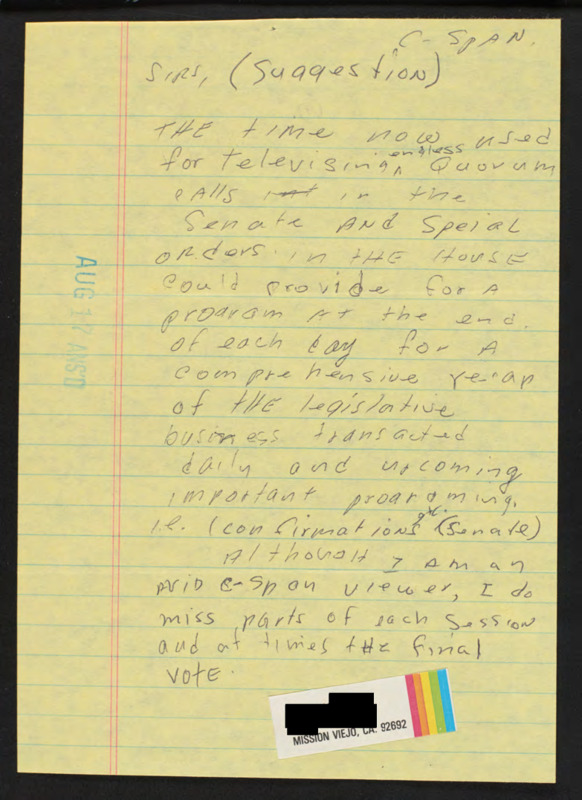 C-SPAN.
SIRS, (Suggestion)
THE time now used
for televising endless Quorum
calls in the
Senate AND Speial
orders in THE House
could provide for A
program AT the end.
of each day for A
comprehensive recap
of THE legislative
business transacted
daily and upcoming
important programing.
i.e. (confirmations etc. (Senate)
Although I AM an
AVID C-Span viewer, I do
miss parts of each session
and at times THE final
VOTE.
AUG 17 ANS'D
MISSION VIEJO, CA. 92692